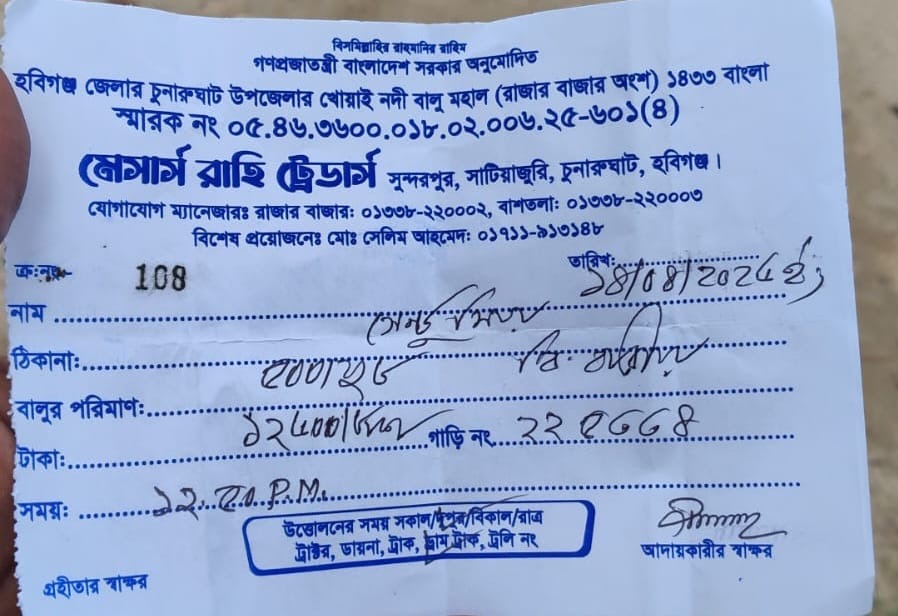 বিসমিল্লাহির রাহমানির রাহিম
গণপ্রজাতন্ত্রী বাংলাদেশ সরকার অনুমোদিত
হবিগঞ্জ জেলার চুনারুঘাট উপজেলার খোয়াই নদী বালু মহাল (রাজার বাজার অংশ) ১৪৩৩ বাংলা
স্মারক নং ০৫.৪৬.৩৬০০.০১৮.০২.০০৬.২৫-৬০১(৪)
মেসার্স রাহি ট্রেডার্স সুন্দরপুর, সাটিয়াজুরি, চুনারুঘাট, হবিগঞ্জ।
যোগাযোগ ম্যানেজারঃ রাজার বাজার: ০১৭৩৮-২২০০০২, বাশতলা: ০১৭৩৮-২২০০০৩
বিশেষ প্রয়োজনেঃ মোঃ সেলিম আহমেদ: ০১৭১১-৯১৩১৪৮
ক্র:নং- 108 তারিখ:
নাম
ঠিকানা:
বালুর পরিমাণ:
টাকা: গাড়ি নং
সময়: ১২.৫০ P.M.
উত্তোলনের সময় সকাল/দুপুর/বিকাল/রাত্র
ট্রাক্টর, ডায়না, ট্রাক, ড্রাম ট্রাক, ট্রলি নং
আদায়কারীর স্বাক্ষর
গ্রহীতার স্বাক্ষর